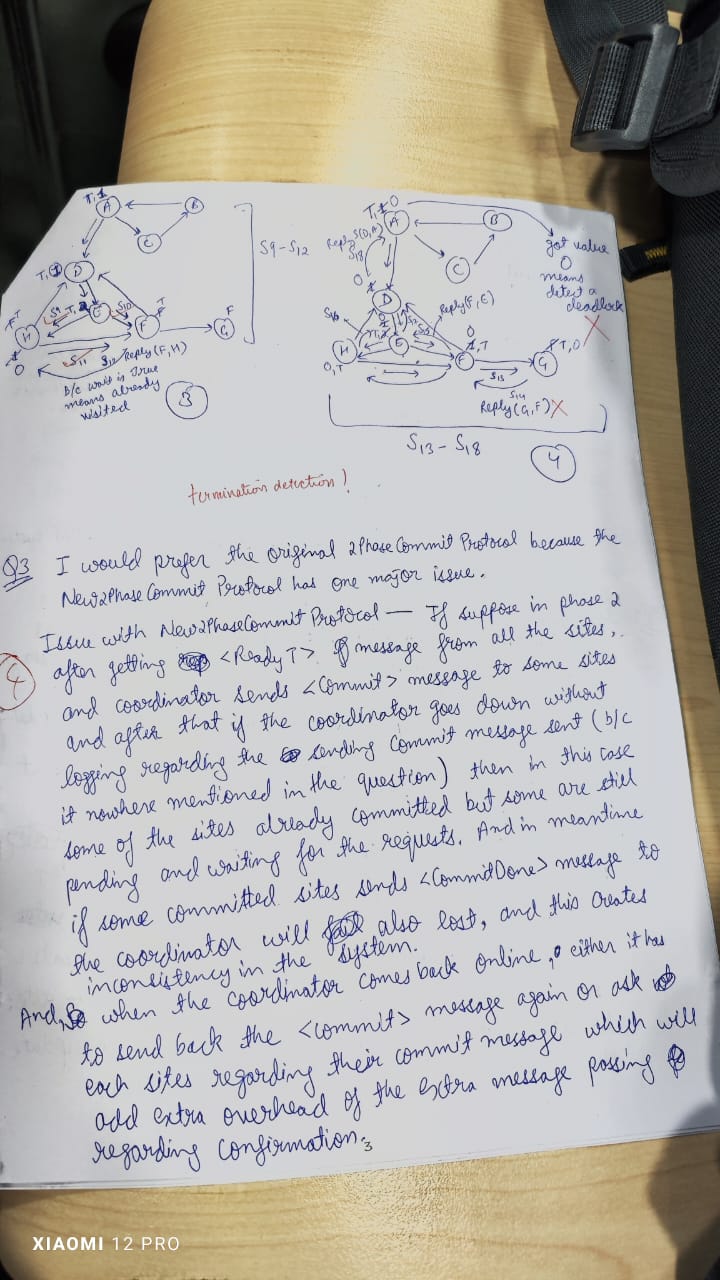 T,1
A
B
C
S9-S12
T,
D
S9
E
S10
H
F
T
F
G
S11
S12 Reply(F,H)
0
b/c wait is True
means already
visited
3
A
B
C
Reply(D,A)
S18
got value
0
means
detect a
deadlock
D
Reply(F,E)
S16
H
E
F
G
0,T
S13
S14
Reply(G,F) X
S13 - S18
4
termination detection!
Q3 I would prefer the original 2Phase Commit Protocol because the
New2Phase Commit Protocol has one major issue.
Issue with New2PhaseCommit Protocol — If suppose in phase 2
4 after getting <Ready T> message from all the sites,
and coordinator sends <Commit> message to some sites
and after that if the coordinator goes down without
logging regarding the sending Commit message sent (b/c
it nowhere mentioned in the question) then in this case
some of the sites already committed but some are still
pending and waiting for the requests. And in meantime
if some committed sites sends <CommitDone> message to
the coordinator will also lost, and this creates
inconsistency in the system.
And, when the coordinator comes back online, either it has
to send back the <commit> message again or ask
each sites regarding their commit message which will
add extra overhead of the extra message passing
regarding confirmation.
3
XIAOMI 12 PRO